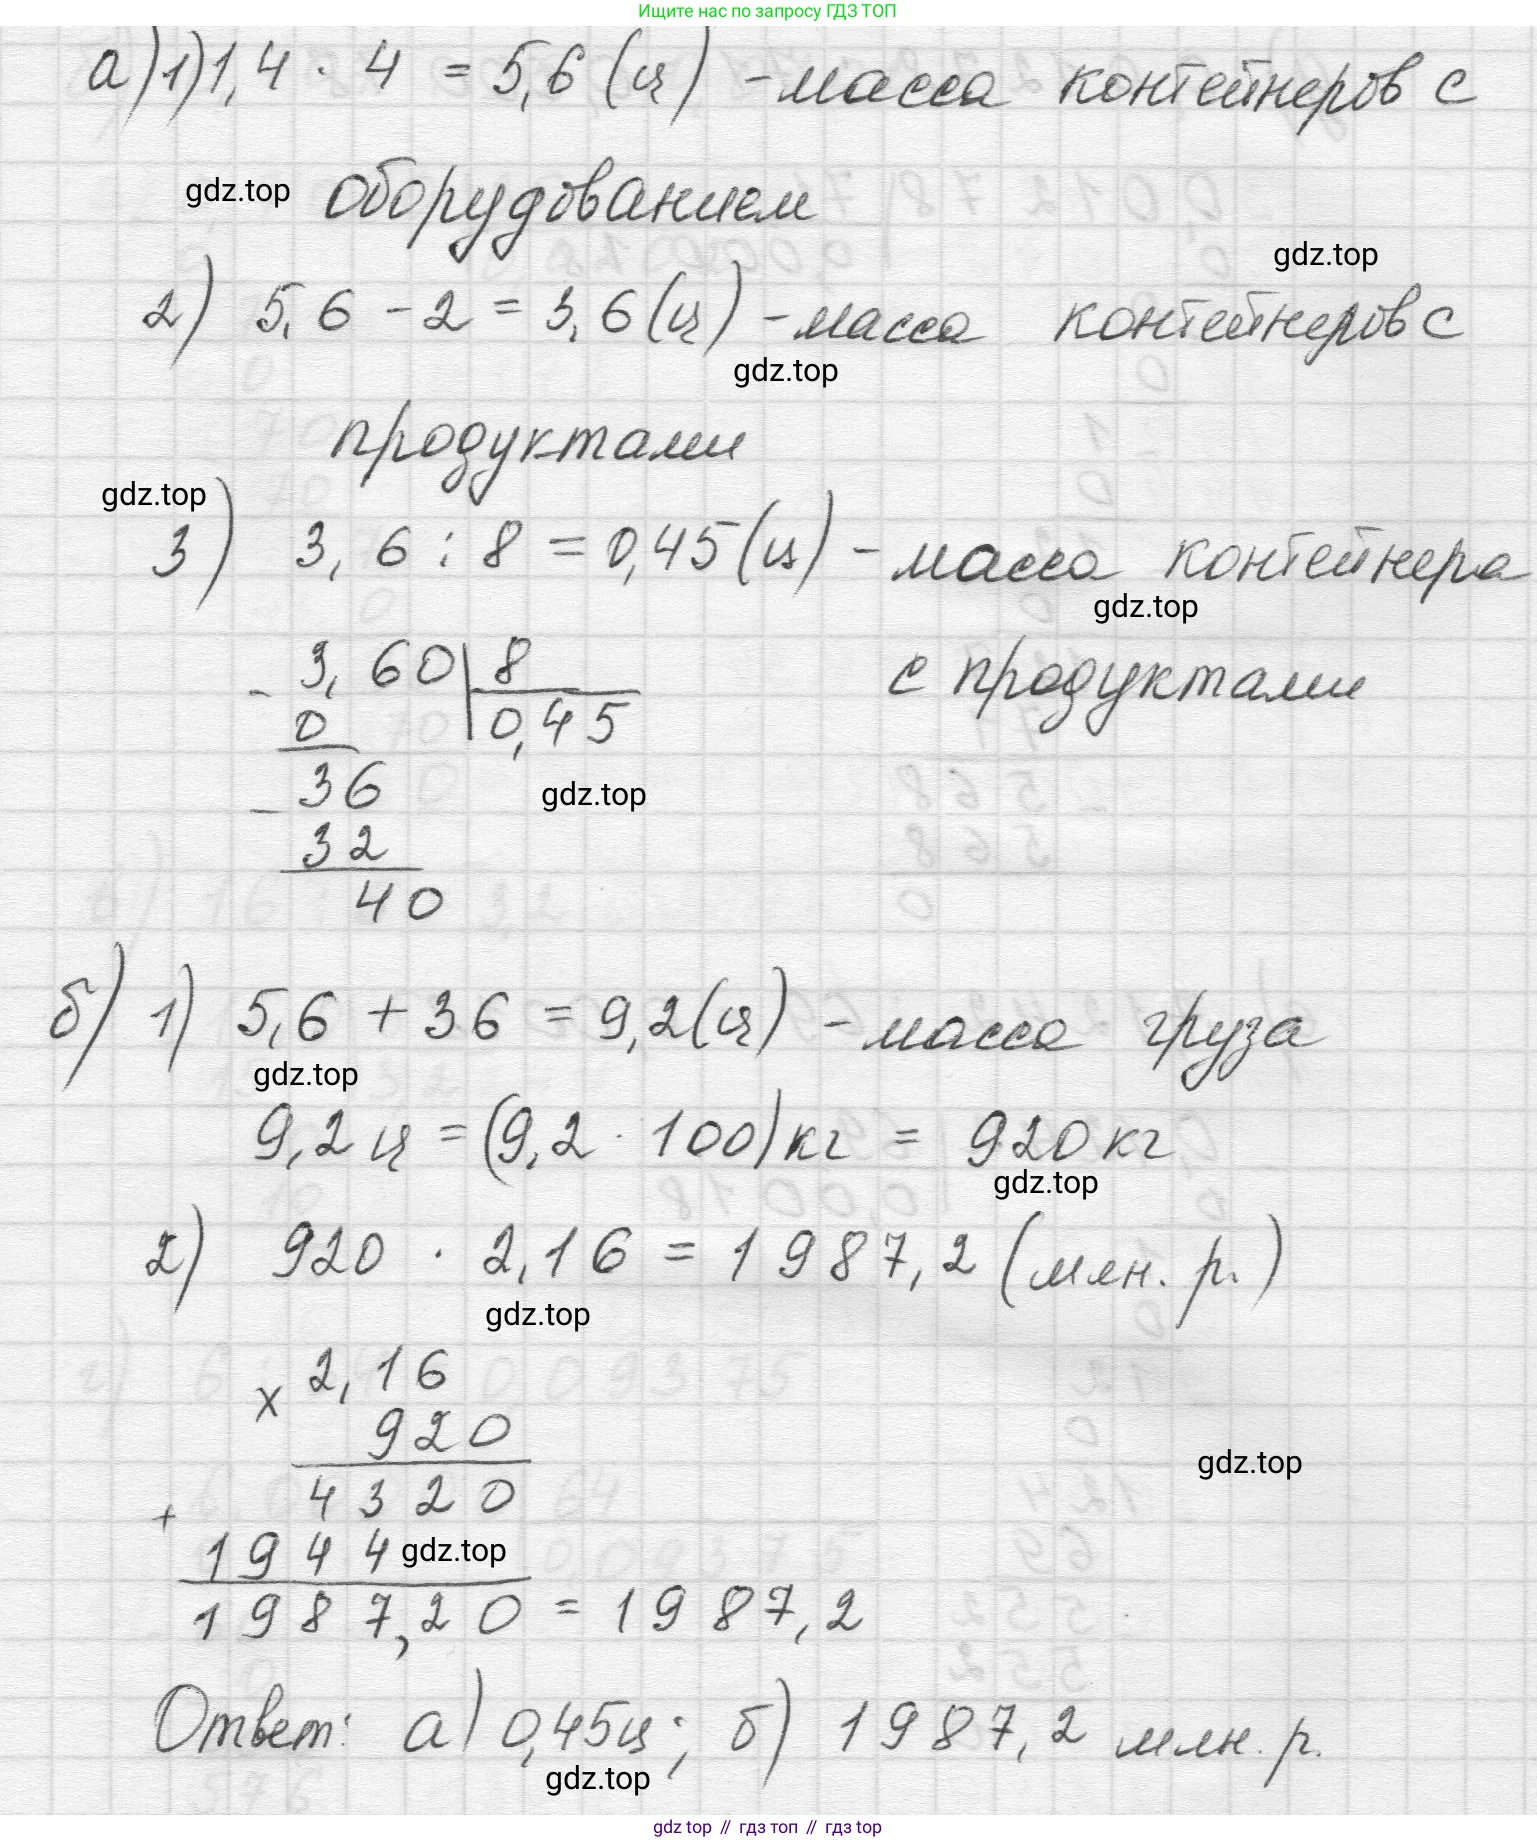 Ищите нас по запросу ГДЗ ТОП
а) 1) 1,4 · 4 = 5,6 (ц) - масса контейнеров с
gdz.top оборудованием
gdz.top
2) 5,6 - 2 = 3,6 (ц) - масса контейнеров с
gdz.top
продуктами
gdz.top
3) 3,6 : 8 = 0,45 (ц) - масса контейнера
gdz.top
с продуктами
- 3,60 | 8
0 | 0,45
- 36
gdz.top
32
40
б) 1) 5,6 + 36 = 9,2 (ц) - масса груза
gdz.top
9,2 ц = (9,2 · 100) кг = 920 кг
gdz.top
2) 920 · 2,16 = 1987,2 (млн. р.)
gdz.top
× 2,16
920
gdz.top
+ 4320
1944 gdz.top
1987,20 = 1987,2
Ответ: а) 0,45ц; б) 1987,2 млн. р.
gdz.top
gdz top // гдз топ // гдз top